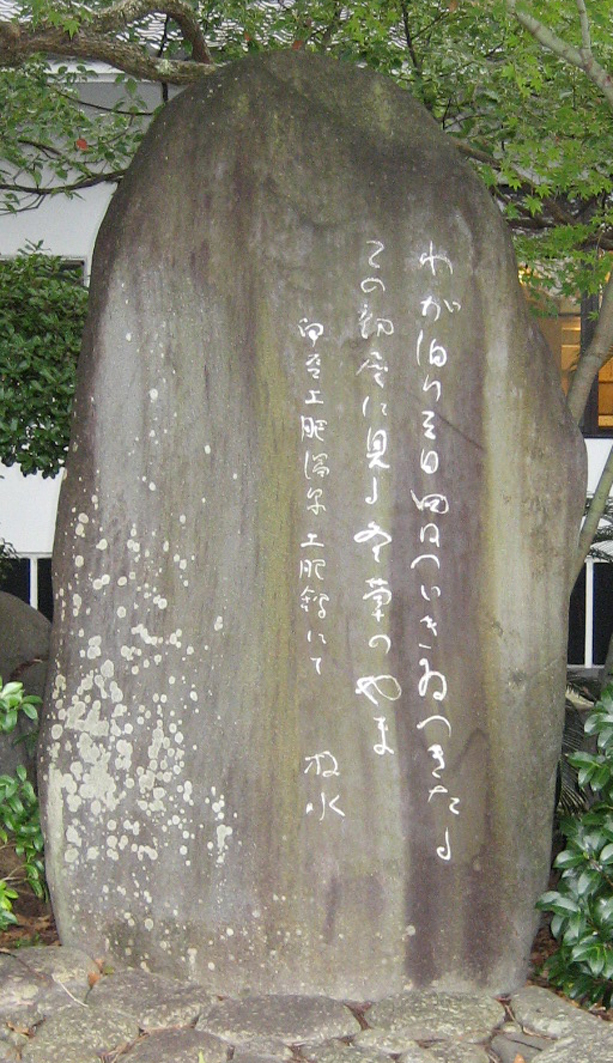 わが泊り三日四日つゞきゐつきたる
この部屋に見る冬草のやま
伊豆土肥温泉土肥館にて 牧水